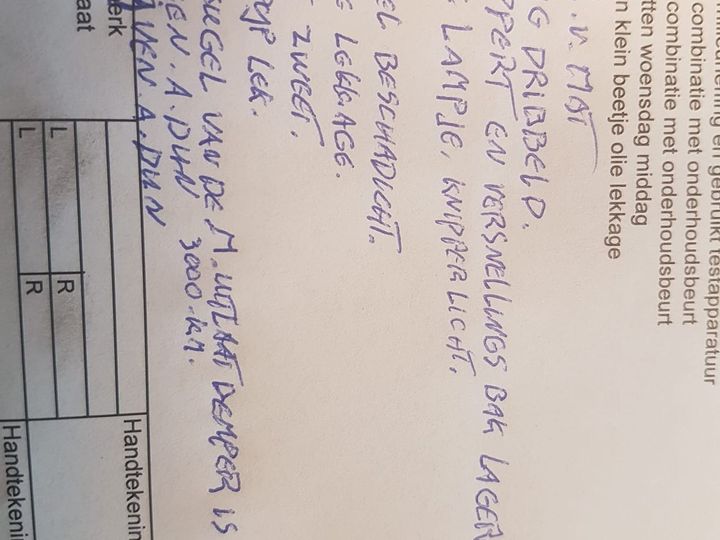 en gebruikt testapparatuur
combinatie met onderhoudsbeurt
combinatie met onderhoudsbeurt
tten woensdag middag
n klein beetje olie lekkage
.V. MAT
G DRIBBELD.
PPERT EN VERSNELLINGS BAK LAGER
LAMPJE, KNIPPERLICHT.
EL BESCHADICHT.
E LEKKAGE.
ZWEET.
LEK.
UGEL VAN DE M. UITLAAT DEMPER IS
EN. A. DUN 3000-KM.
VEN A. DUN
erk
aat
Handtekenin
L R
L R
Handtekenin